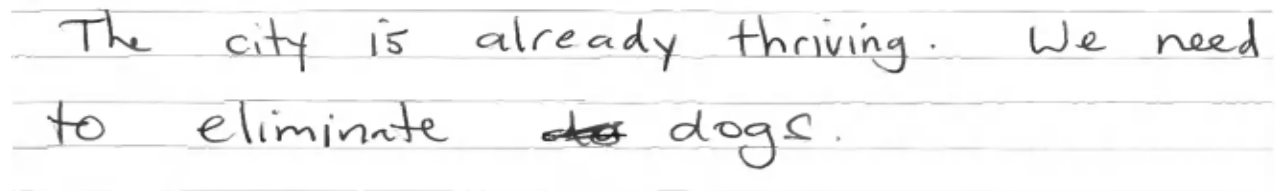 The city is already thriving. We need
to eliminate dogs.